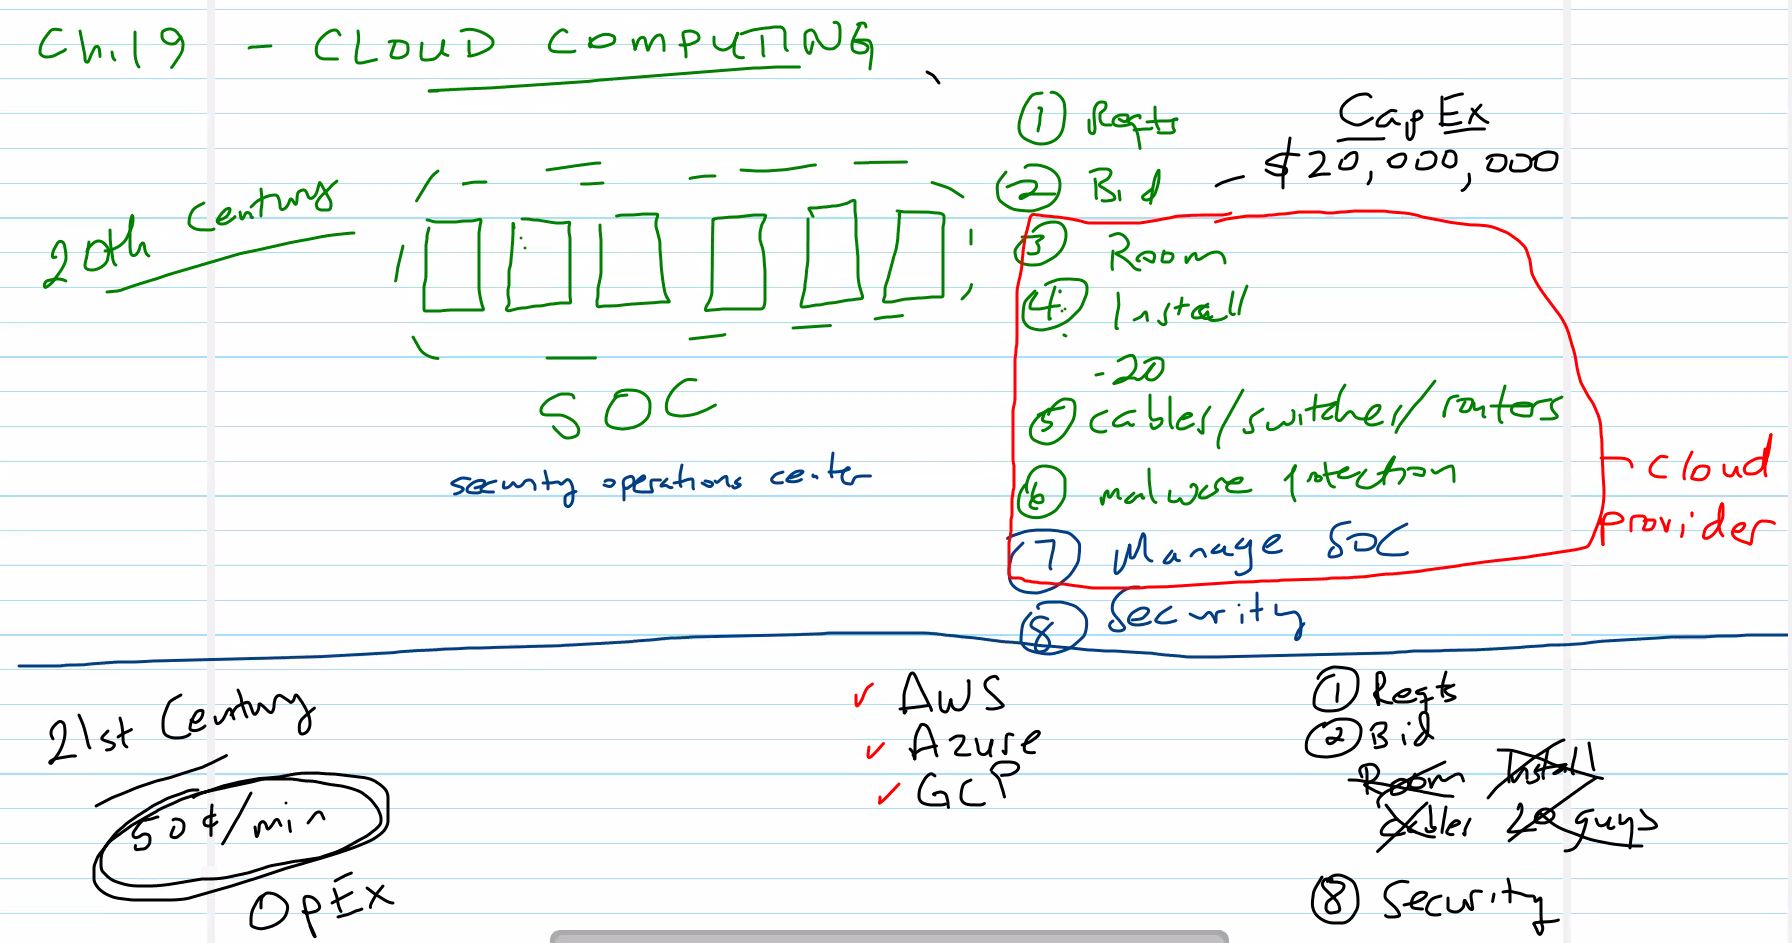 Ch.19 - CLOUD COMPUTING
20th Century
SOC
security operations center
① Reqts
② Bid
③ Room
④ Install
-20
⑤ cables/switches/routers
⑥ malware protection
⑦ Manage SOC
⑧ Security
CapEx
$20,000,000
cloud
provider
21st Century
50¢/min
OpEx
✓ AWS
✓ Azure
✓ GCP
① Reqts
② Bid
Room Install
cables 20 guys
⑧ Security